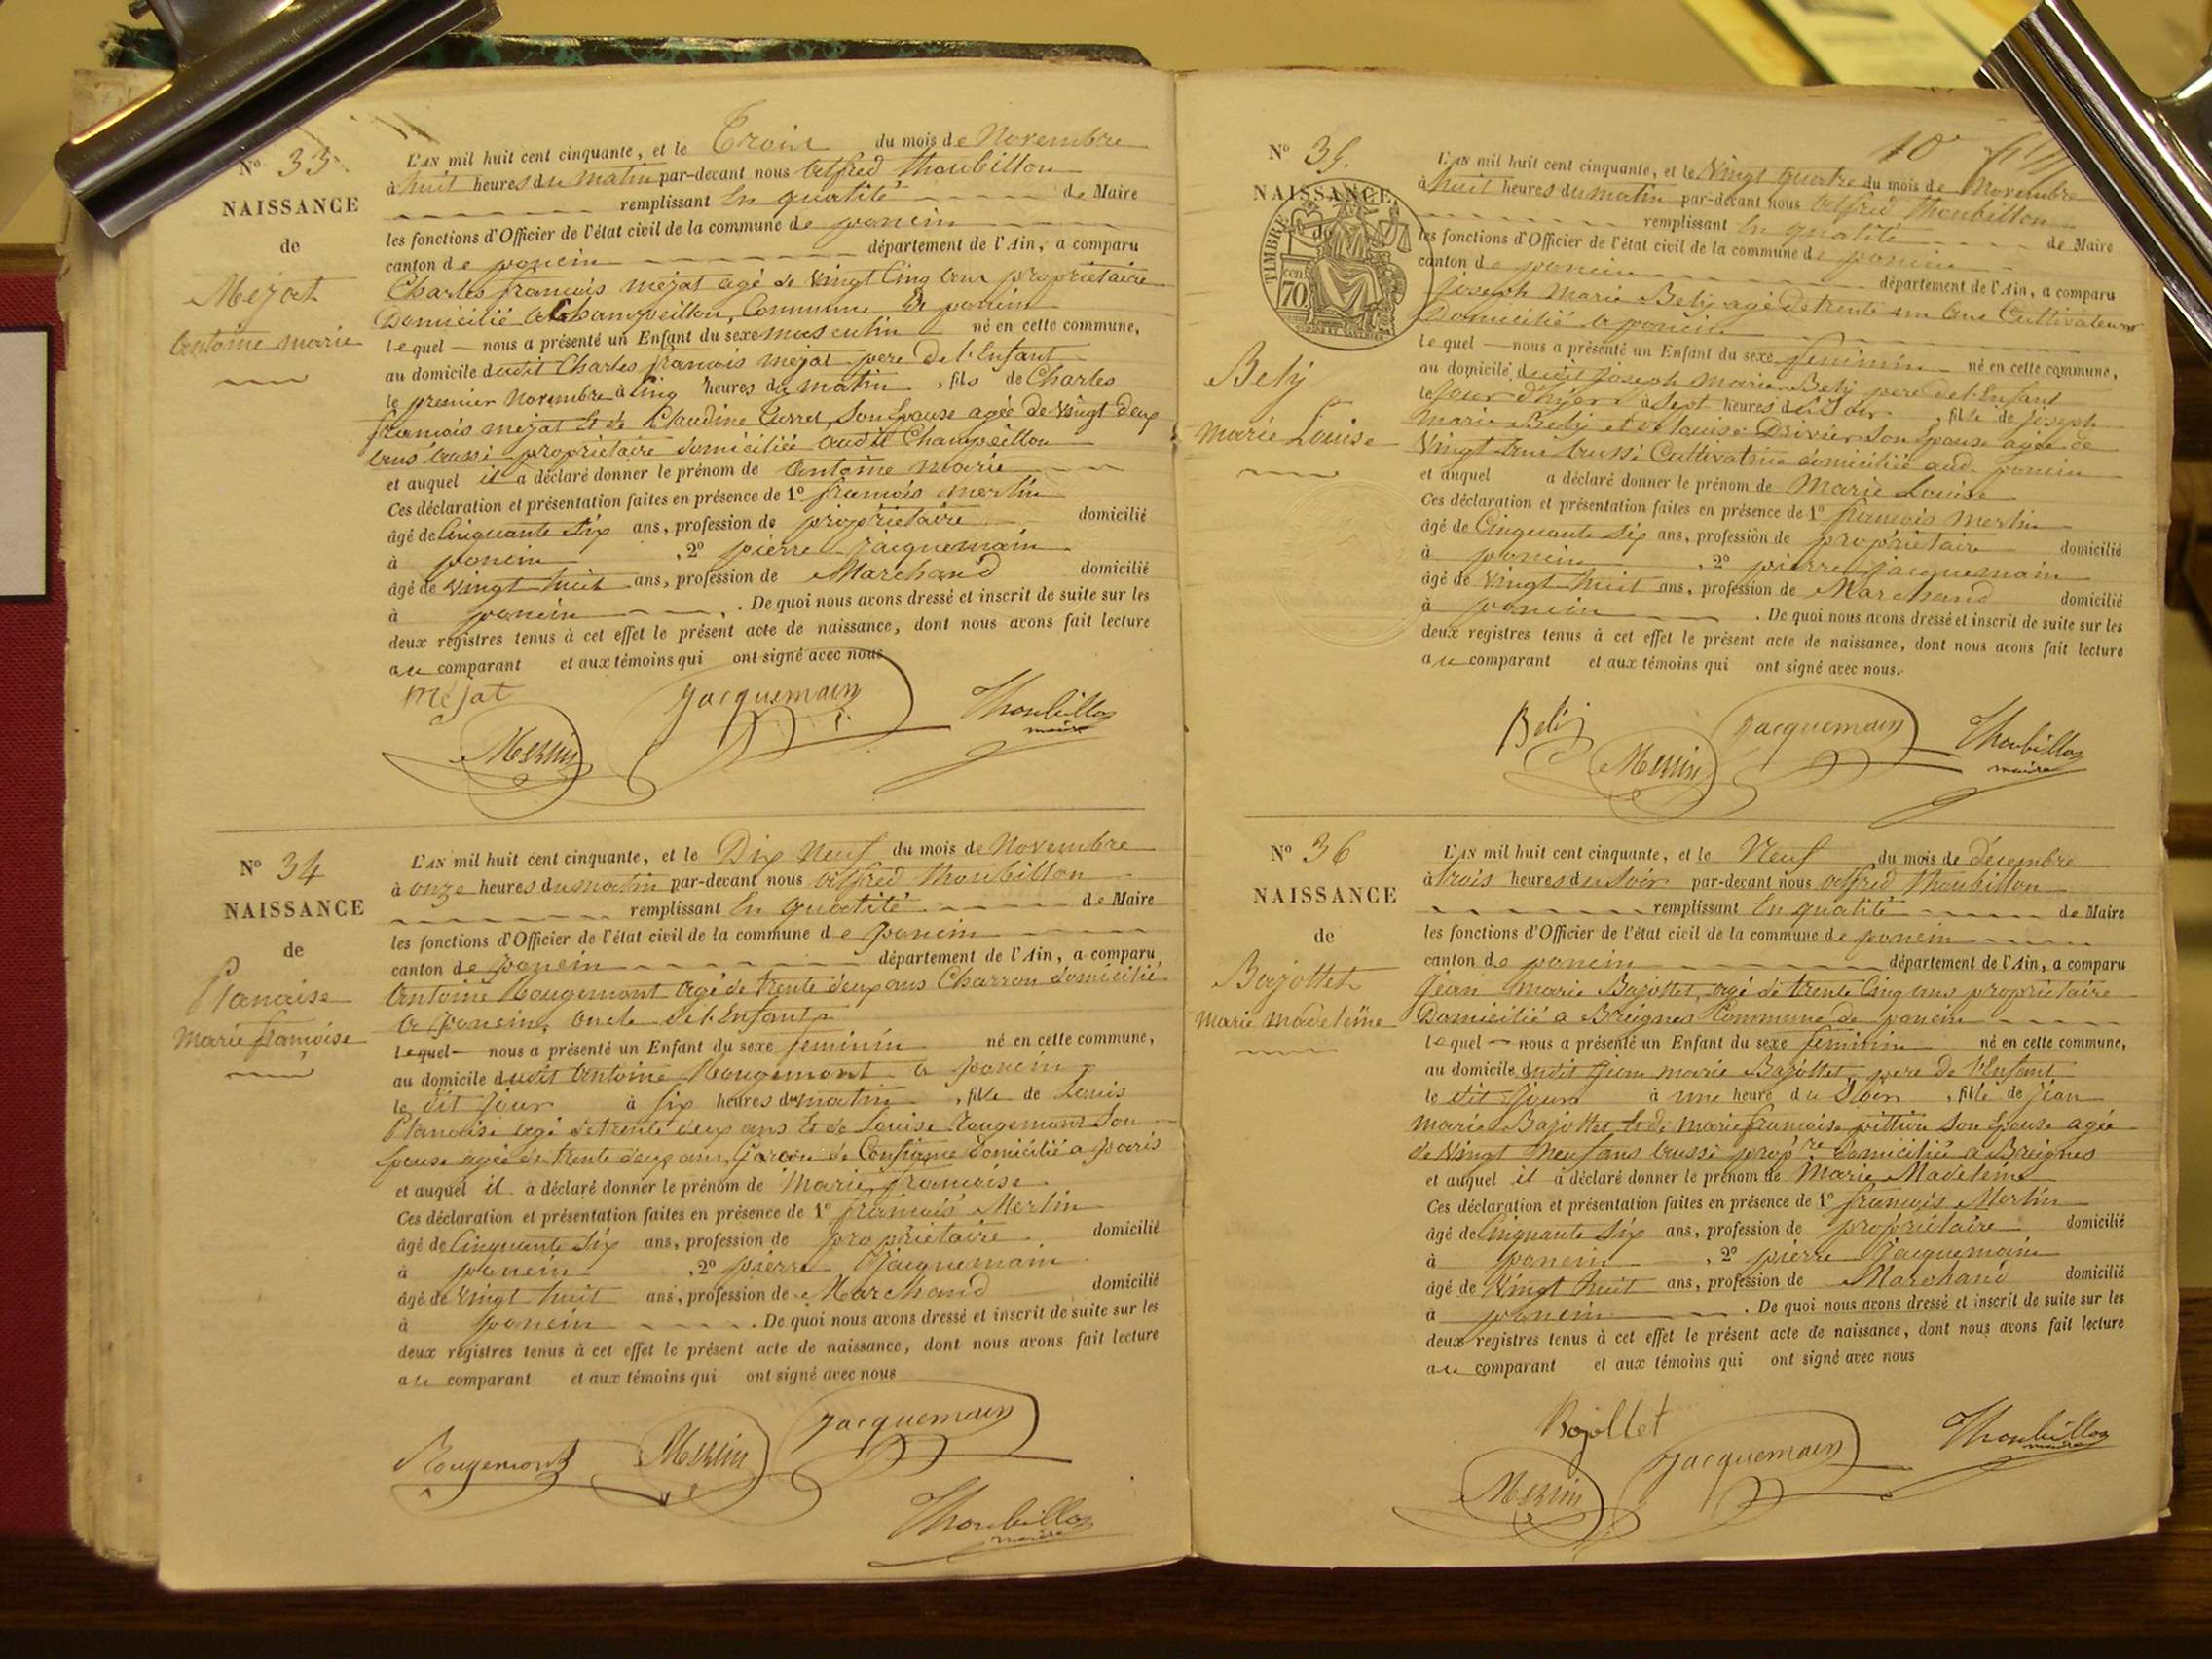 N° 33.
NAISSANCE
de
Mejat
antoine marie
L'AN mil huit cent cinquante, et le Trois du mois de Novembre
à huit heures du matin par-devant nous alfred thoubillon
remplissant en qualité de Maire
les fonctions d'Officier de l'état civil de la commune de poncin
canton de poncin département de l'Ain, a comparu
Charles françois mejat agé de vingt Cinq ans propriétaire
Domicilié a Champeillon, Commune de poncin
lequel nous a présenté un Enfant du sexe masculin né en cette commune,
au domicile dudit Charles françois mejat pere de l'Enfant
le premier Novembre à Cinq heures du matin, fils de Charles
françois mejat et de Claudine Curret, son Epouse agée de vingt deux
ans aussi propriétaire domiciliée audit Champeillon
et auquel il a déclaré donner le prénom de antoine marie
Ces déclaration et présentation faites en présence de 1° françois merlin
âgé de Cinquante six ans, profession de propriétaire domicilié
à poncin, 2° pierre jacquemain
âgé de vingt huit ans, profession de Marchand domicilié
à poncin. De quoi nous avons dressé et inscrit de suite sur les
deux registres tenus à cet effet le présent acte de naissance, dont nous avons fait lecture
au comparant et aux témoins qui ont signé avec nous
mejat
Jacquemain
Thoubillon
maire
Merlin
N° 34
NAISSANCE
de
Planaise
marie françoise
L'AN mil huit cent cinquante, et le Dix Neuf du mois de Novembre
à onze heures du matin par-devant nous alfred thoubillon
remplissant en qualité de Maire
les fonctions d'Officier de l'état civil de la commune de poncin
canton de poncin département de l'Ain, a comparu
antoine Rougemont agé de trente deux ans Charron domicilié
a poncin, oncle de l'Enfant
lequel nous a présenté un Enfant du sexe feminin né en cette commune,
au domicile dudit antoine Rougemont a poncin
le dit jour à six heures du matin, fille de Louis
Planaise agé de trente deux ans et de Louise Rougemont son
Epouse agée de trente deux ans, Garçon de Confiance domicilié a paris
et auquel il a déclaré donner le prénom de Marie françoise
Ces déclaration et présentation faites en présence de 1° françois Merlin
âgé de Cinquante six ans, profession de propriétaire domicilié
à poncin, 2° pierre Jacquemain
âgé de vingt huit ans, profession de Marchand domicilié
à poncin. De quoi nous avons dressé et inscrit de suite sur les
deux registres tenus à cet effet le présent acte de naissance, dont nous avons fait lecture
au comparant et aux témoins qui ont signé avec nous
Rougemont
Merlin
Jacquemain
Thoubillon
maire
N° 35.
NAISSANCE
TIMBRE
70
Bely
marie Louise
10
L'AN mil huit cent cinquante, et le Vingt quatre du mois de Novembre
à huit heures du matin par-devant nous alfred thoubillon
remplissant en qualité de Maire
les fonctions d'Officier de l'état civil de la commune de poncin
canton de poncin département de l'Ain, a comparu
joseph marie Bely agé de trente un ans Cultivateur
Domicilié a poncin
lequel nous a présenté un Enfant du sexe feminin né en cette commune,
au domicile dudit joseph marie Bely pere de l'Enfant
le jour d'hyer à sept heures du soir, fille de joseph
marie Bely et de louise Drivier son Epouse agée de
vingt aussi Cultivatrice domiciliée aud. poncin
et auquel a déclaré donner le prénom de Marie Louise
Ces déclaration et présentation faites en présence de 1° françois Merlin
âgé de Cinquante six ans, profession de propriétaire domicilié
à poncin, 2° pierre jacquemain
âgé de vingt huit ans, profession de Marchand domicilié
à poncin. De quoi nous avons dressé et inscrit de suite sur les
deux registres tenus à cet effet le présent acte de naissance, dont nous avons fait lecture
au comparant et aux témoins qui ont signé avec nous.
Bely
Merlin
Jacquemain
Thoubillon
maire
N° 36
NAISSANCE
de
Bajottet
marie madeleine
L'AN mil huit cent cinquante, et le Neuf du mois de décembre
à trois heures du soir par-devant nous alfred thoubillon
remplissant en qualité de Maire
les fonctions d'Officier de l'état civil de la commune de poncin
canton de poncin département de l'Ain, a comparu
jean marie Bajottet, agé de trente Cinq ans propriétaire
Domicilié a Breignes Commune de poncin
lequel nous a présenté un Enfant du sexe feminin né en cette commune,
au domicile dudit jean marie Bajottet pere de l'Enfant
le dit jour à une heure du soir, fille de jean
marie Bajottet et de marie françoise pittion son Epouse agée
de vingt neuf ans aussi prop.re domiciliée a Breignes
et auquel il a déclaré donner le prénom de Marie Madeleine
Ces déclaration et présentation faites en présence de 1° françois Merlin
âgé de Cinquante six ans, profession de propriétaire domicilié
à poncin, 2° pierre Jacquemain
âgé de vingt huit ans, profession de Marchand domicilié
à poncin. De quoi nous avons dressé et inscrit de suite sur les
deux registres tenus à cet effet le présent acte de naissance, dont nous avons fait lecture
au comparant et aux témoins qui ont signé avec nous
Bajollet
Merlin
Jacquemain
Thoubillon
maire